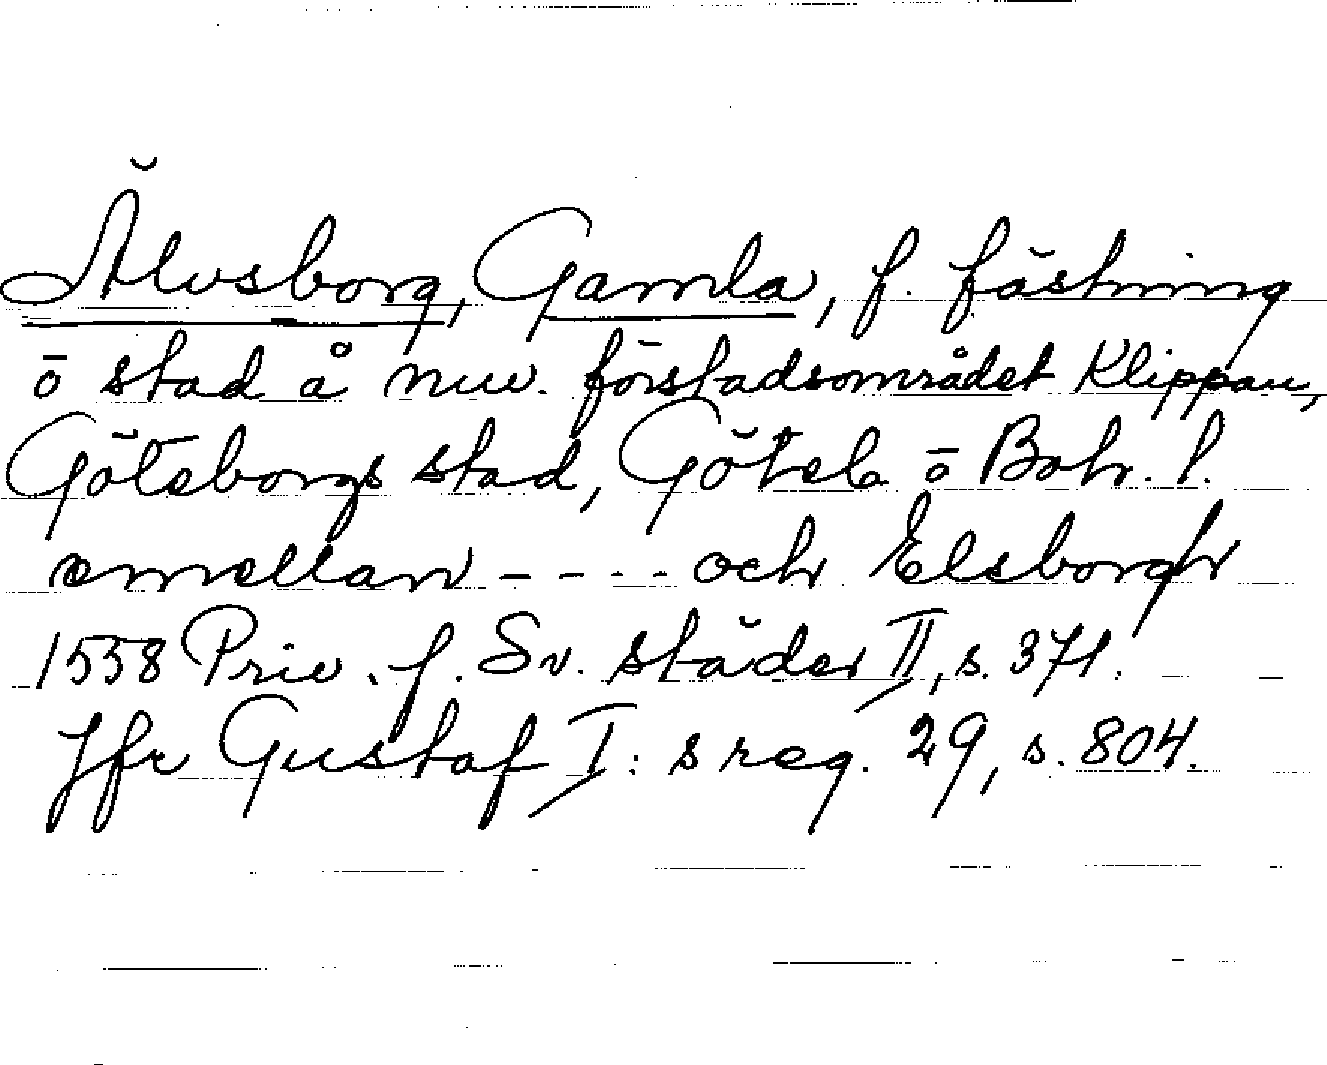 Älvsborg, Gamla, f. fästning
o stad å nuv. förstadsområdet Klippan,
Göteborgs stad, Göteb o Boh. l.
emellan - - - - och Elsborgh
1558 Priv. f. Sv. städer II, s. 371.
Jfr Gustaf I: s reg. 29, s. 804.